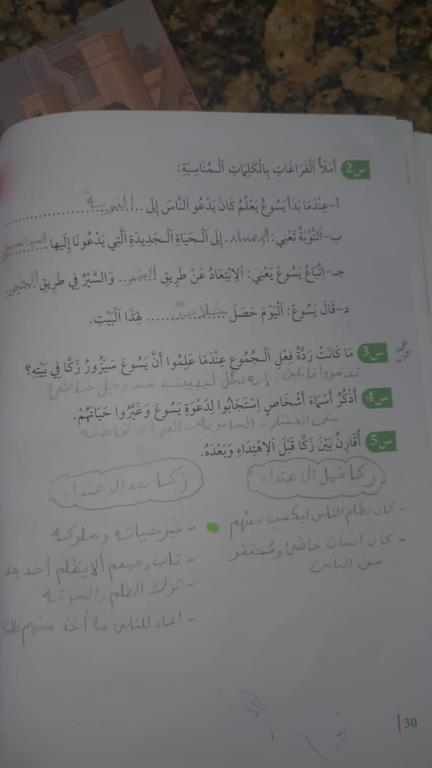 س2 أَمْلَأُ ٱلْفَرَاغَاتِ بِالْكَلِمَاتِ ٱلْمُنَاسِبَةِ:
أ-عِنْدَمَا بَدَأَ يَسُوعُ يُعَلِّمُ كَانَ يَدْعُو ٱلنَّاسَ إِلَى ...التوبة...
ب-ٱلتَّوْبَةُ تَعْنِي: ...إِلَى ٱلْحَيَاةِ ٱلْجَدِيدَةِ ٱلَّتِي يَدْعُونَا إِلَيْهَا السيد المسيح
جـ-اِتِّبَاعُ يَسُوعَ يَعْنِي: اَلِابْتِعَادُ عَنْ طَرِيقِ الشر... وَٱلسَّيْرُ فِي طَرِيقِ الخير
د-قَالَ يَسُوعُ: اَلْيَوْمَ حَصَلَ خلاص... لِهَذَا ٱلْبَيْتِ.
س3 مَا كَانَتْ رَدَّةُ فِعْلِ ٱلْجُمُوعِ عِنْدَمَا عَلِمُوا أَنَّ يَسُوعَ سَيَزُورُ زَكَّا فِي بَيْتِهِ؟
تذمروا قائلين: إنه دخل ليبيت عند رجل خاطئ
س4 أَذْكُرُ أَسْمَاءَ أَشْخَاصٍ اِسْتَجَابُوا لِدَعْوَةِ يَسُوعَ وَغَيَّرُوا حَيَاتَهُمْ.
متى العشار - السامرية - المرأة الخاطئة
س5 أُقَارِنُ بَيْنَ زَكَّا قَبْلَ ٱلِاهْتِدَاءِ وَبَعْدَهُ.
زكا قبل الاهتداء
زكا بعد الاهتداء
- كان يظلم الناس ليكسب منهم
- كان انسان خاطئ ومحتقر
من الناس
- غير حياته وسلوكه
- تاب وصمم ألا يظلم أحد
- ترك الظلم والسرقة
- اعاد للناس ما أخذ منهم
30